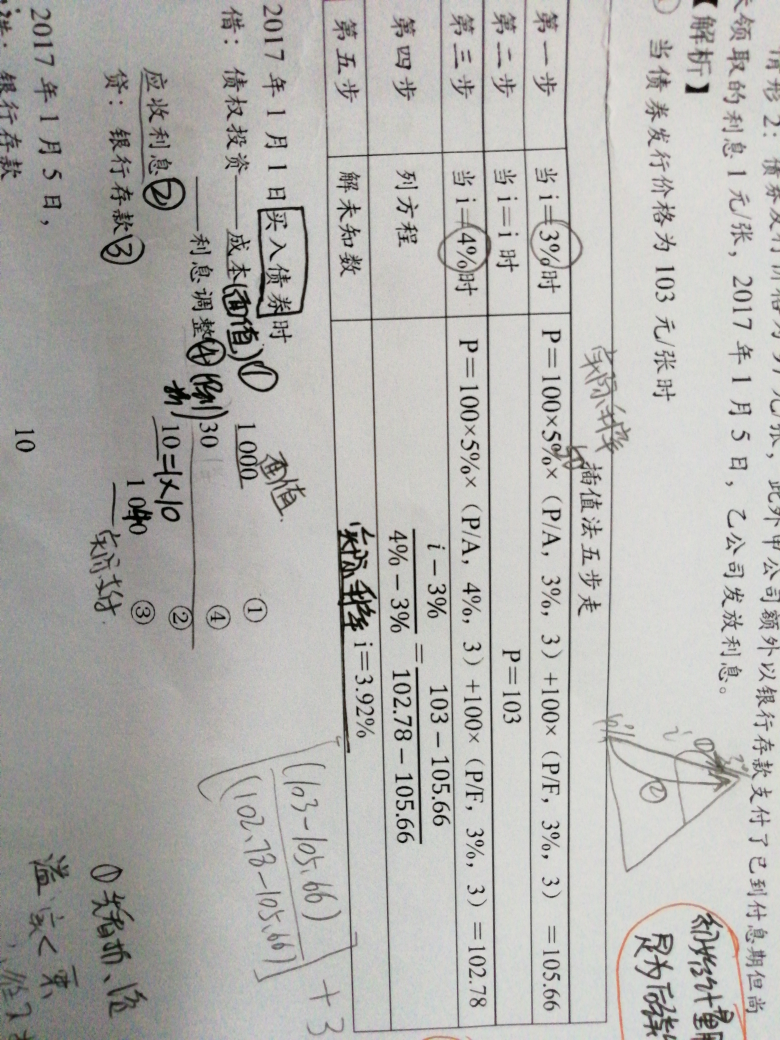 情形 2：债券发行价格为 97 元/张，此外甲公司额外以银行存款支付了已到付息期但尚
领取的利息 1 元/张，2017 年 1 月 5 日，乙公司发放利息。
【解析】
① 当债券发行价格为 103 元/张时
初始计量
是为后续
实际利率
插值法五步走
第一步 当 i＝3%时 P＝100×5%×（P/A，3%，3）+100×（P/F，3%，3）＝105.66
第二步 当 i＝i 时 P＝103
第三步 当 i＝4%时 P＝100×5%×（P/A，4%，3）+100×（P/F，3%，3）＝102.78
第四步 列方程 i－3% / 4%－3% ＝ 103－105.66 / 102.78－105.66
第五步 解未知数 实际利率 i＝3.92%
(103-105.66)
(102.78-105.66) + 3
2017 年 1 月 1 日买入债券时
面值
借：债权投资——成本(面值)① 1 000 ①
——利息调整④(倒) 30 ④
应收利息② 10 =1×10 ②
贷：银行存款③ 1040 ③
实际支付
①先看折、溢
溢价
2017 年 1 月 5 日，
借：银行存款 10